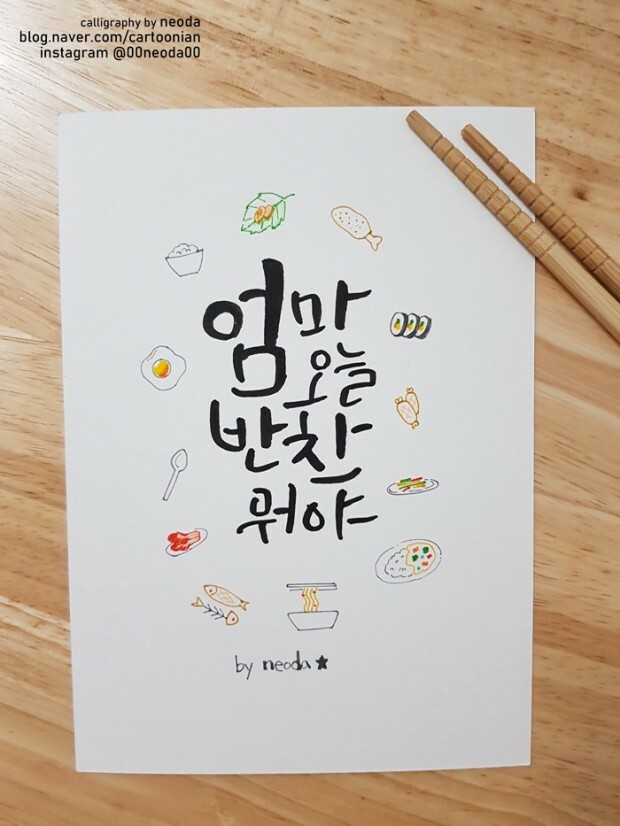 calligraphy by neoda
blog.naver.com/cartoonian
instagram @00neoda00
엄마
오늘
반찬
뭐야
by neoda ★